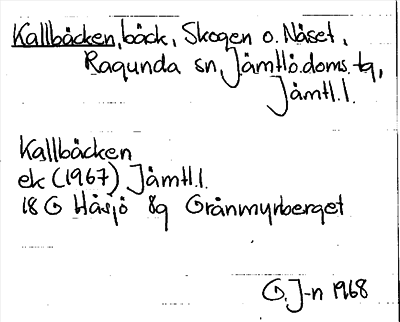 Kallbäcken, bäck, Skogen o. Näset,
Ragunda sn, Jämtl.ö.doms. tg,
Jämtl.l.
Kallbäcken
ek (1967) Jämtl.l.
18G Håsjö 8g Grånmyrberget
G. J-n 1968